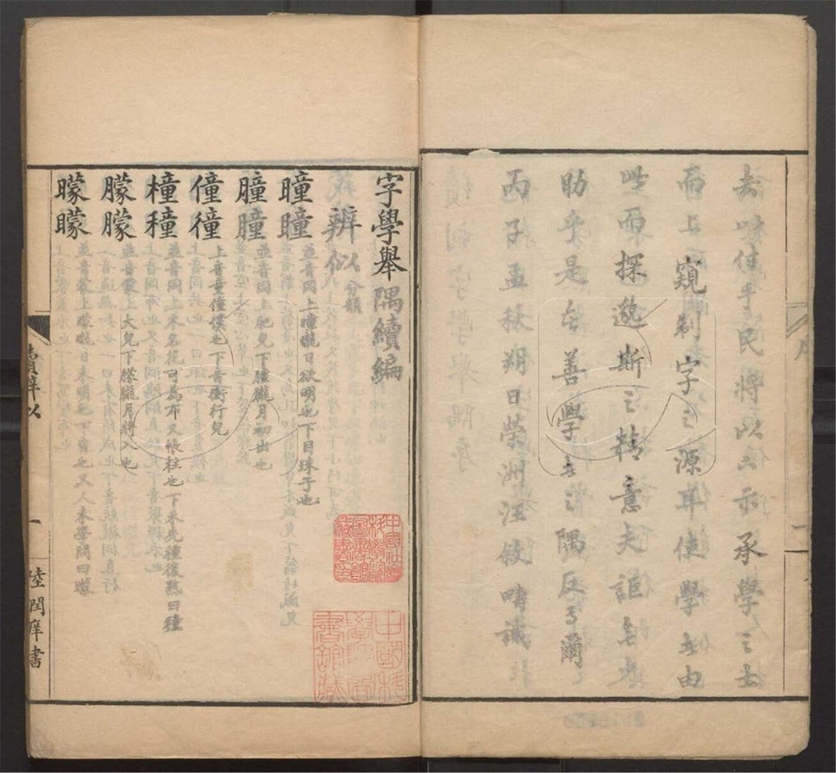 去以佳乎民將以公示承學之士
而上窺制字之源耳使學者由
此而探邀斯之精意夫詎無大
助乎是在善學者之隅反多爾
丙子孟秋朔日榮洲汪敘疇識
字學舉隅續編
辨似 分韻
曈瞳 並音同上曈曨日欲明也下目珠子也
膧朣 並音同上肥皃下朣朧月初出也
僮徸 上音童僮僕也下音衝行皃
橦穜 並音同上木名花可為布又帳柱也下禾先種後熟曰穜
朦朦 並音蒙上大皃下朦朧月將入也
曚矇 並音蒙上曚曨日未明也下瞽也又人未學問曰矇
續辨似
一
陸潤庠書